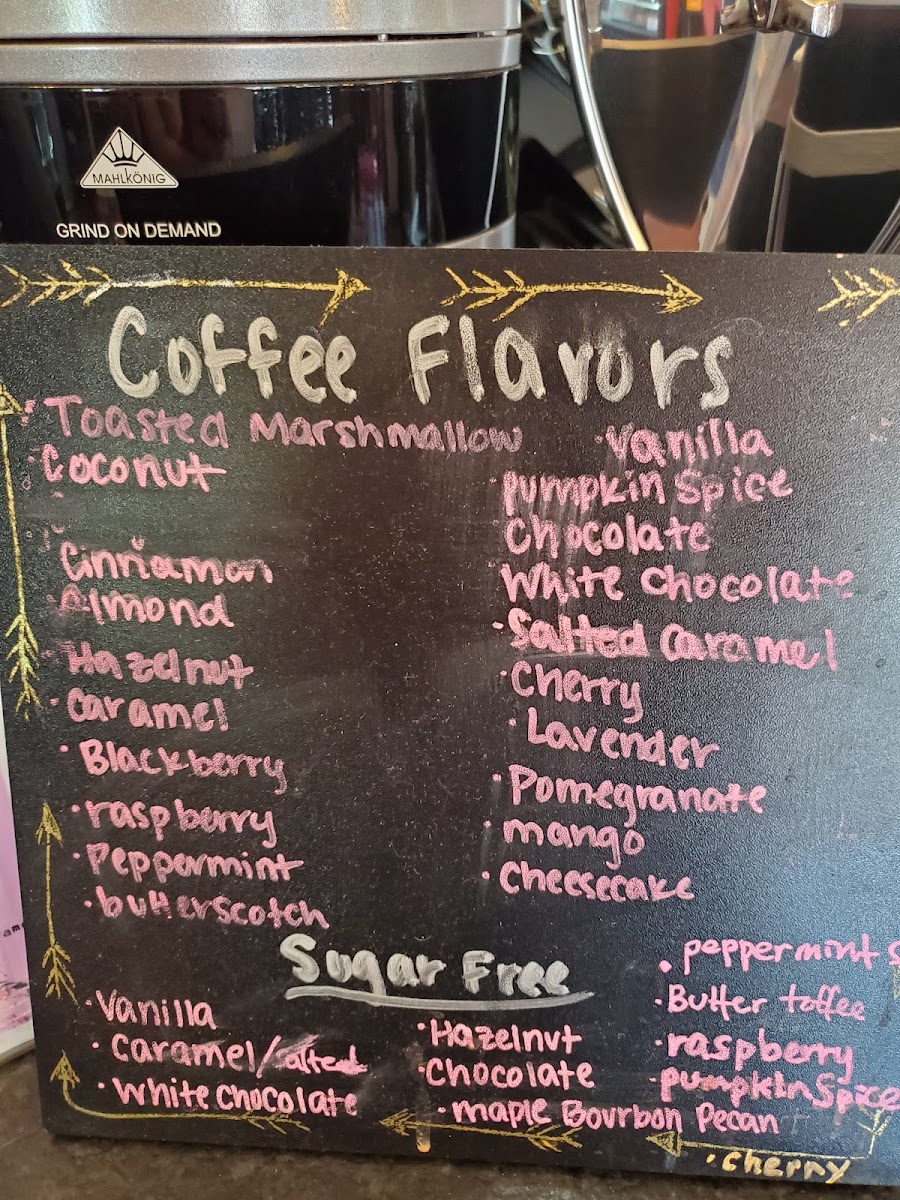 MAHLKÖNIG
GRIND ON DEMAND
Coffee Flavors
Toasted Marshmallow
Coconut
Cinnamon
Almond
Hazelnut
Caramel
Blackberry
raspberry
Peppermint
butterscotch
Vanilla
pumpkin spice
Chocolate
White Chocolate
Salted Caramel
Cherry
Lavender
Pomegranate
mango
Cheesecake
Sugar Free
Vanilla
Caramel/salted
White Chocolate
Hazelnut
Chocolate
maple Bourbon Pecan
peppermint
Butter toffee
raspberry
pumpkin Spice
cherry